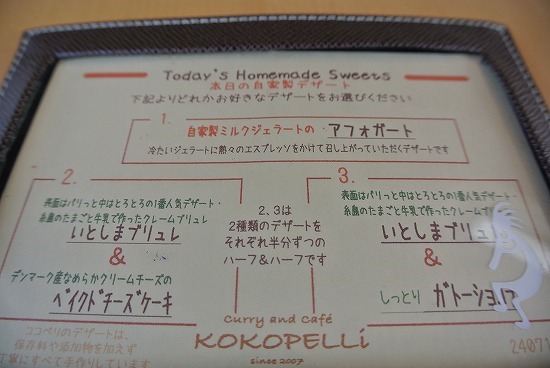 Today's Homemade Sweets
本日の自家製デザート
下記よりどれかお好きなデザートをお選びください
1.
自家製ミルクジェラートの アフォガート
冷たいジェラートに熱々のエスプレッソをかけて召し上がっていただくデザートです
2.
表面はパリっと中はとろとろの1番人気デザート・
糸島のたまごと牛乳で作ったクレームブリュレ
いとしまブリュレ
&
デンマーク産なめらかクリームチーズの
ベイクドチーズケーキ
2、3は
2種類のデザートを
それぞれ半分ずつの
ハーフ&ハーフです
3.
表面はパリっと中はとろとろの1番人気デザート・
糸島のたまごと牛乳で作ったクレームブリュレ
いとしまブリュ
&
しっとり ガトーショ
ココペリのデザートは、
保存料や添加物を加えず
丁寧にすべて手作りしています
Curry and Café
KOKOPELLi
since 2007
24071